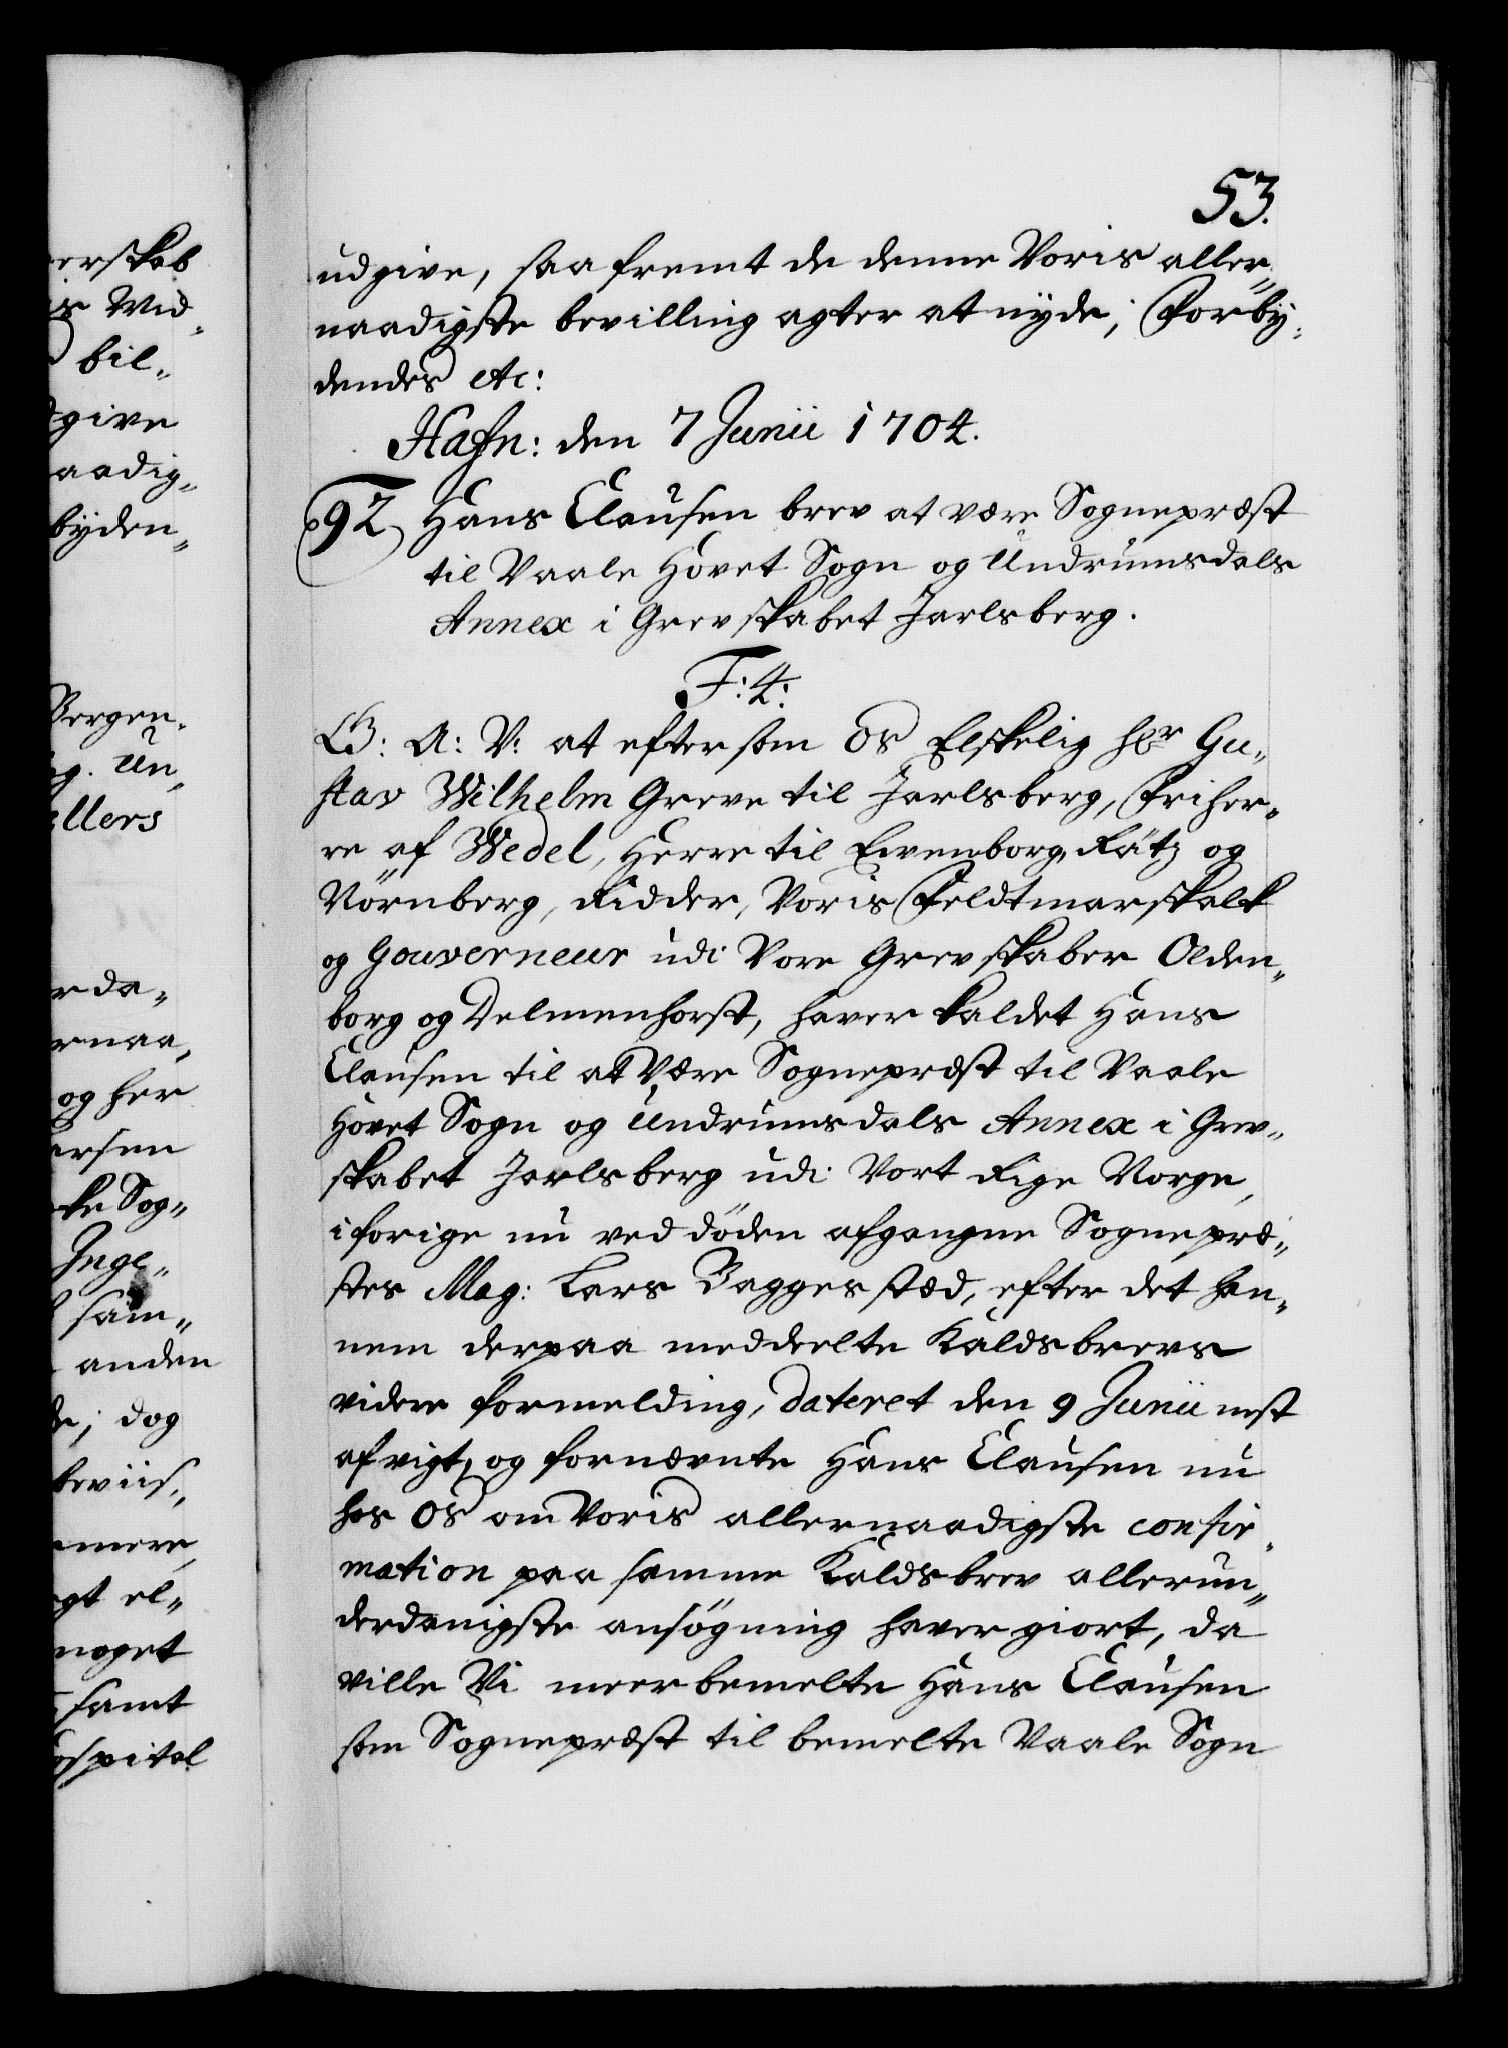 53.
udgive, saafremt de denne Voris aller„
naadigste bevilling agter at nyde; Forby„
dendes etc:
Hafn: den 7 Junii 1704.
92 Hans Clausen brev at være Sognepræst
til Vaale Hovet Sogn og Undrumsdals
Annex i Grevskabet Jarlsberg.
F: 4:
G: A: V: at eftersom os Elskelig Hr Gu„
stav Wilhelm Greve til Jarlsberg, Friher„
re af Wedel, Herre til Evenborg, Rätz og
Nörnberg, Ridder, Voris Feldtmarskalk
og Gouverneur udi Vore Grevskaber Olden„
borg og Delmenhorst, haver kaldet Hans
Clausen til at være Sognepræst til Vaale
Hovet Sogn og Undrumsdals Annex i Grev„
skabet Jarlsberg udi Vort Rige Norge,
i forige nu ved döden afgangne Sognepræ„
stes Mag: Lars Bagges stæd, efter det han„
nem derpaa meddeelte Kaldsbrevs
videre formelding, dateret den 9 Junii nest
afvigt, og fornævnte Hans Clausen nu
hos Os om Voris allernaadigste confir„
mation paa samme Kaldsbrev allerun„
derdanigste ansögning haver giort, da
ville Vi meerbemelte Hans Clausen
som Sognepræst til bemelte Vaale Sogn
erskab
is Vid„
bil„
give
aadig„
byden„
Bergen.
og. Un„
llers
rda„
rnaa„
og her
ersen
ke Sog„
Inge„
sam„
anden
de; dog
beviis„
mere,
gt el„
noget
samt
ospital